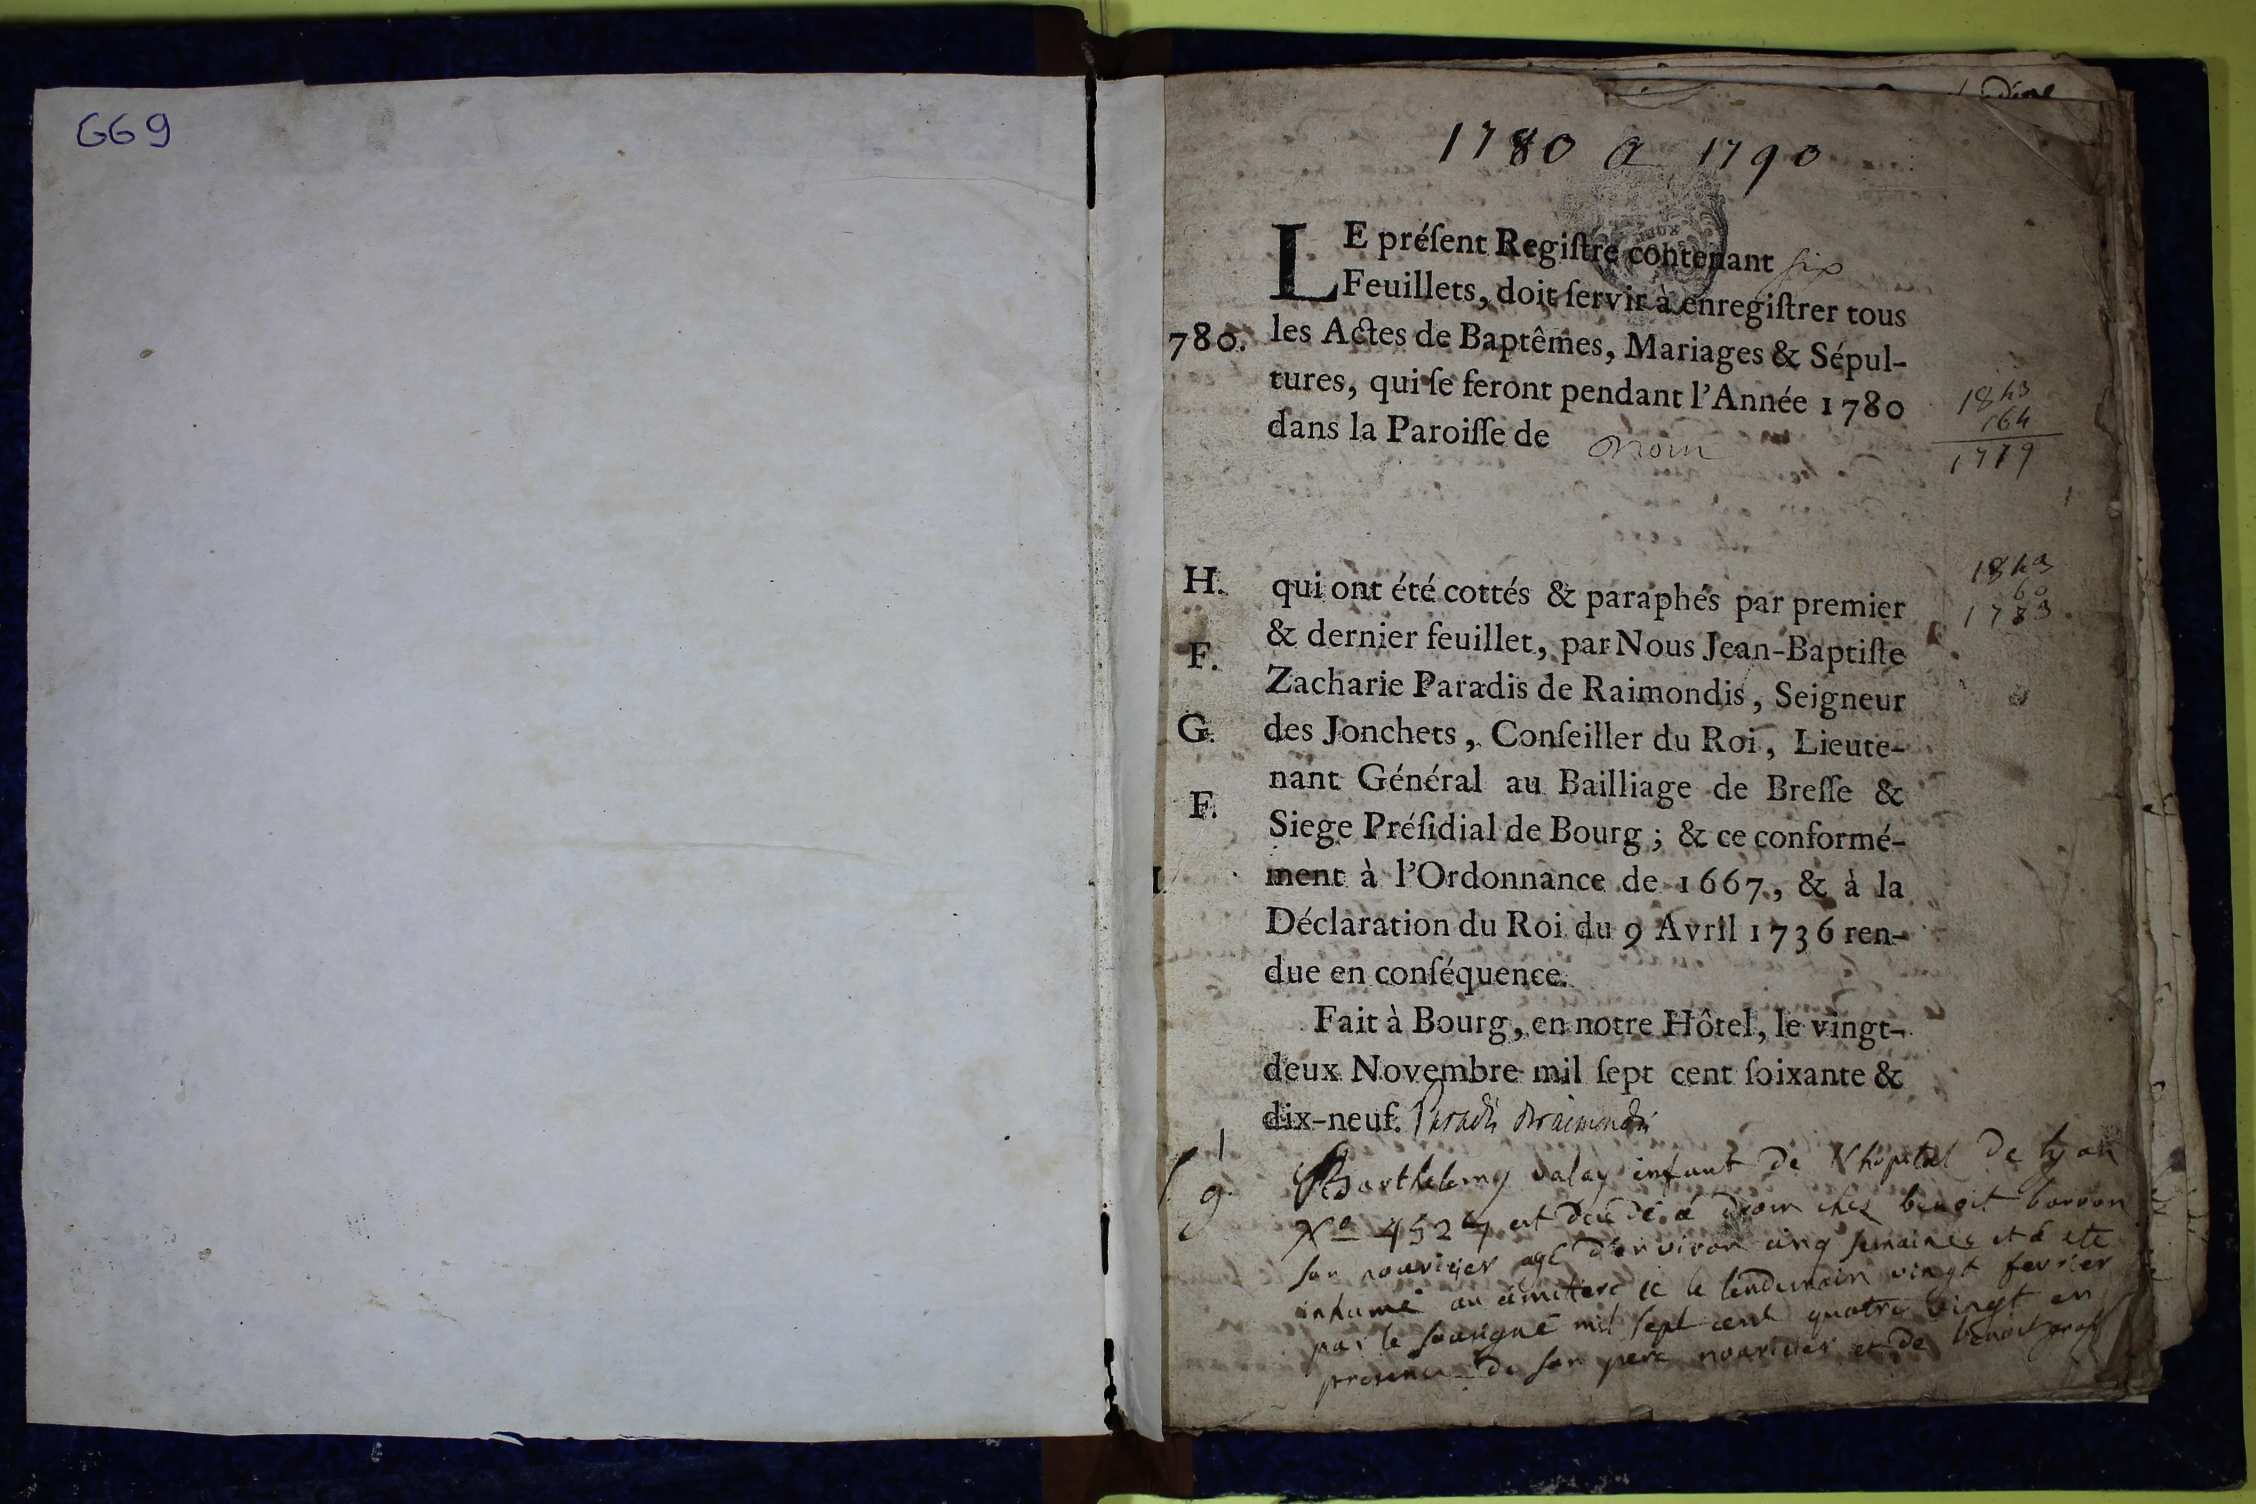 GG9
1780 a 1790
LE préſent Regiſtre contenant six
Feuillets, doit ſervir à enregiſtrer tous
780. les Actes de Baptêmes, Mariages & Sépul-
tures, qui ſe feront pendant l'Année 1780
dans la Paroiſſe de Drom
1843
164
1779
H. qui ont été cottés & paraphés par premier
& dernier feuillet, par Nous Jean-Baptiſte
F.
Zacharie Paradis de Raimondis, Seigneur
G. des Jonchets, Conſeiller du Roi, Lieute-
nant Général au Bailliage de Breſſe &
F.
Siege Préſidial de Bourg; & ce conformé-
ment à l'Ordonnance de 1667, & à la
Déclaration du Roi du 9 Avril 1736 ren-
due en conſéquence.
1843
60
1783
Fait à Bourg, en notre Hôtel, le vingt-
deux Novembre mil ſept cent ſoixante &
dix-neuf. Paradis Draimondis
1 Barthelemy valay enfant de l'hôpital de lyon
g. No 4524 est décédé a drom chez benoit borron
son nouricier agé d'environ cinq semaines et a ete
inhumé au cimitiere ic le lendemain vingt fevrier
par le sousigné mil sept cent quatre vingt en
presence de son pere nouricier et de benoit